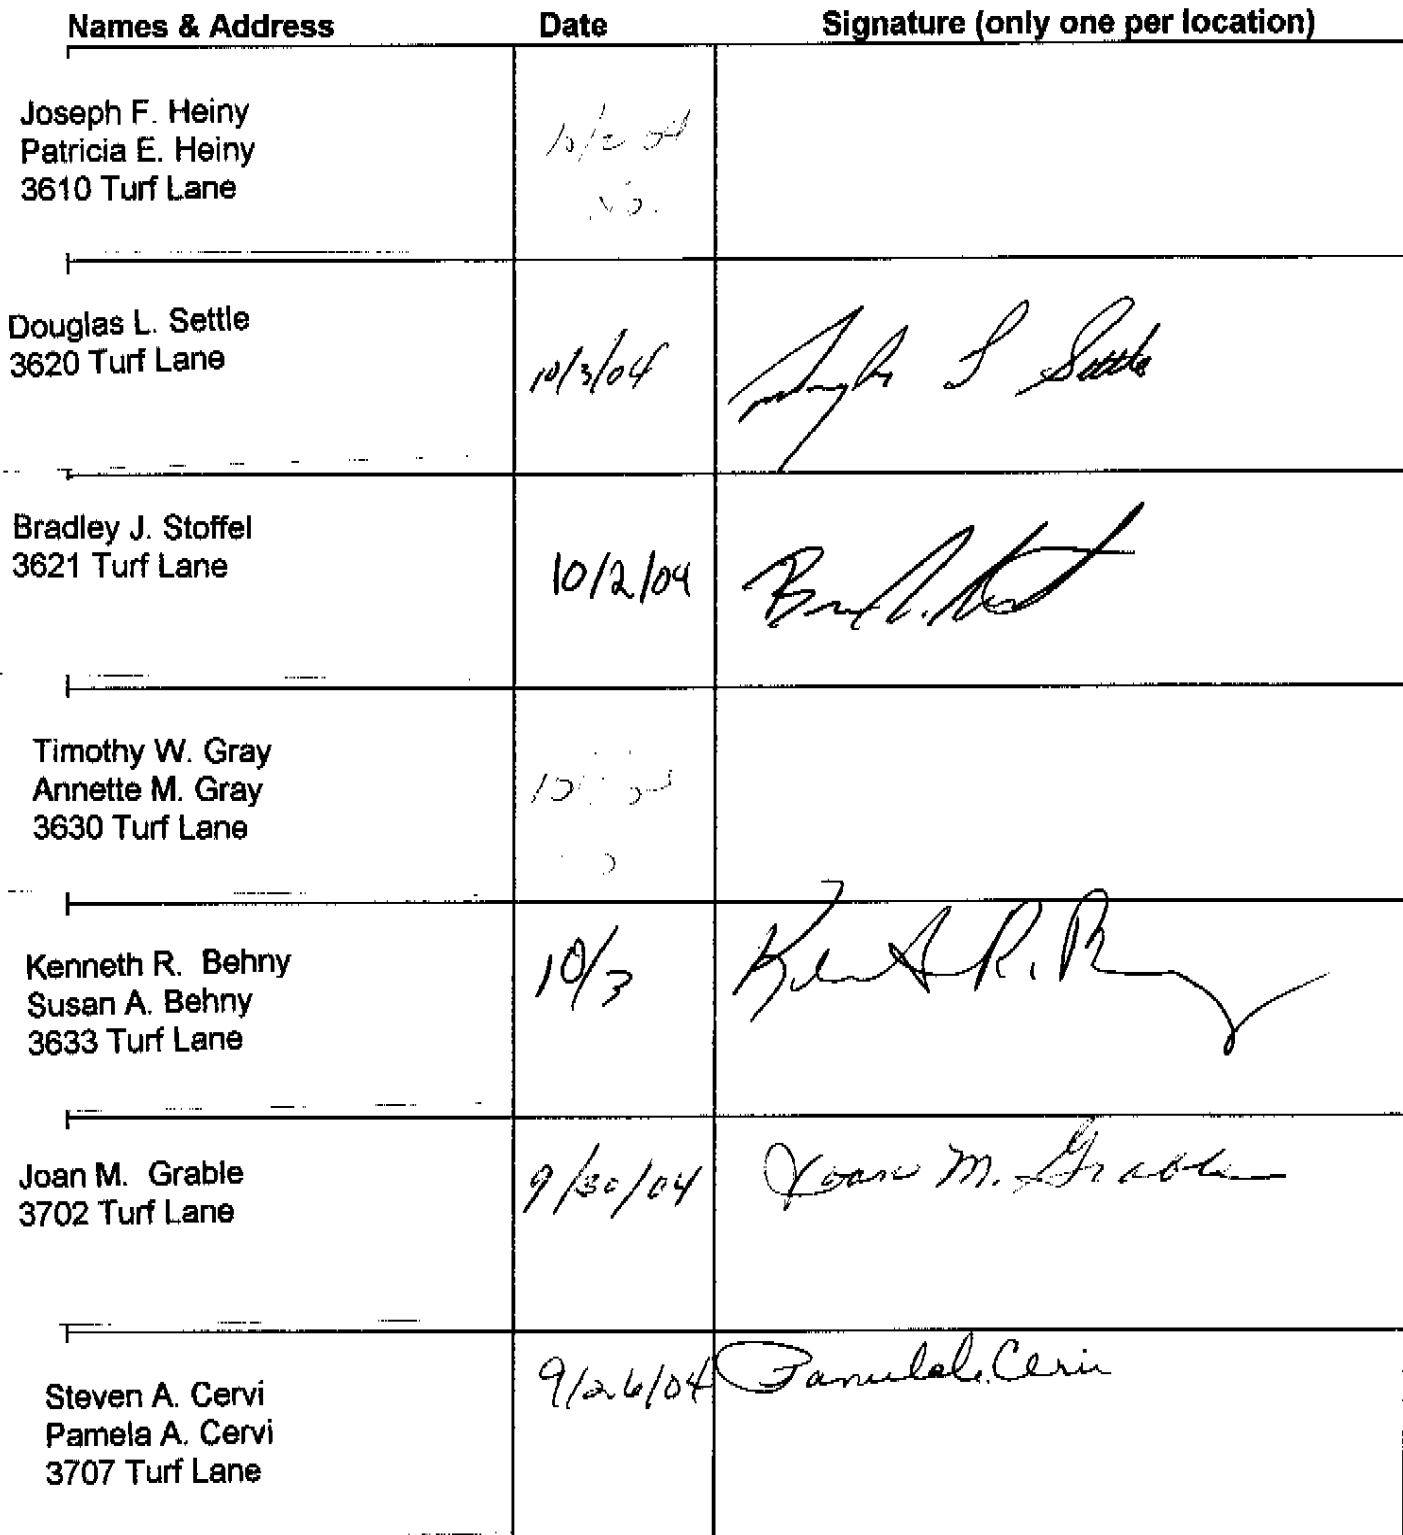 Names & Address Date Signature (only one per location)
Joseph F. Heiny
Patricia E. Heiny
3610 Turf Lane
Douglas L. Settle
3620 Turf Lane
10/3/04 L Settle
Bradley J. Stoffel
3621 Turf Lane
10/2/04
Timothy W. Gray
Annette M. Gray
3630 Turf Lane
Kenneth R. Behny
Susan A. Behny
3633 Turf Lane
10/3
Joan M. Grable
3702 Turf Lane
9/30/04 Joan M. Grable
9/26/04 Pamela A. Cervi
Steven A. Cervi
Pamela A. Cervi
3707 Turf Lane